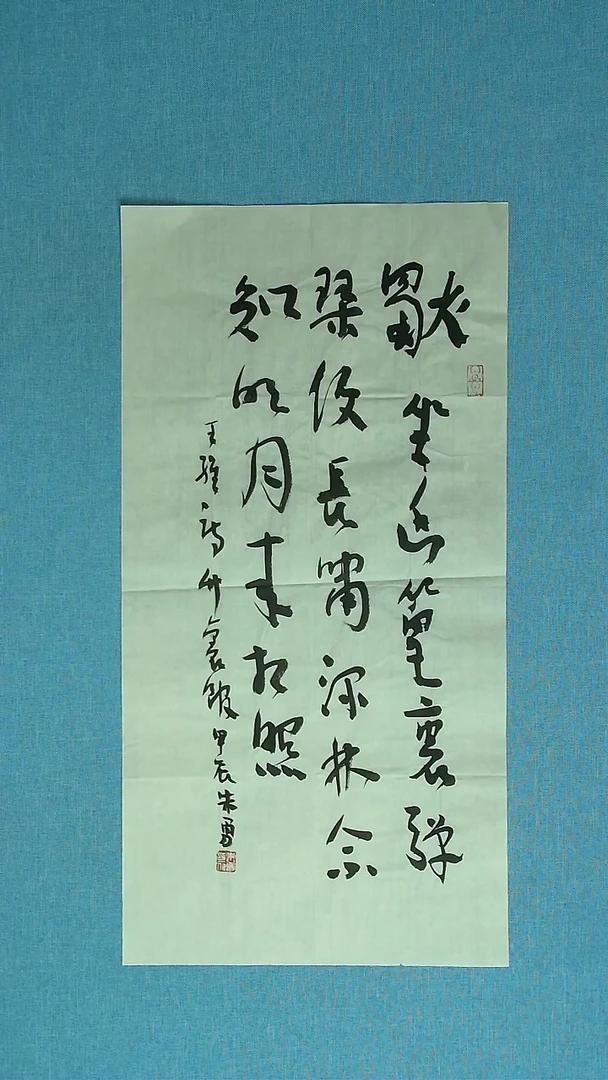 獨坐幽篁裏彈
琴復長嘯深林人不
知明月来相照
王維詩竹裏館甲辰朱勇